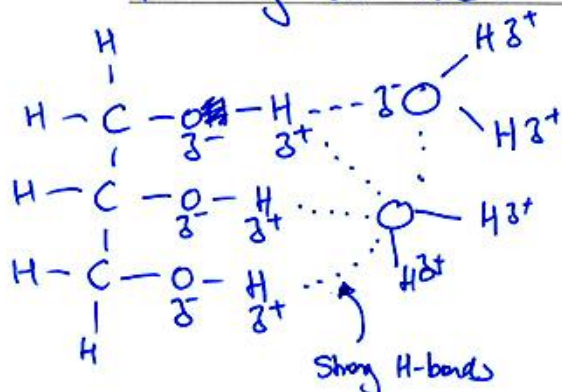 H
H - C - O - H --- δ- O H δ+
δ- δ+ H δ+
H - C - O - H ..... O - H δ+
δ- δ+ H δ+
H - C - O - H
δ- δ+
H
Strong H-bonds